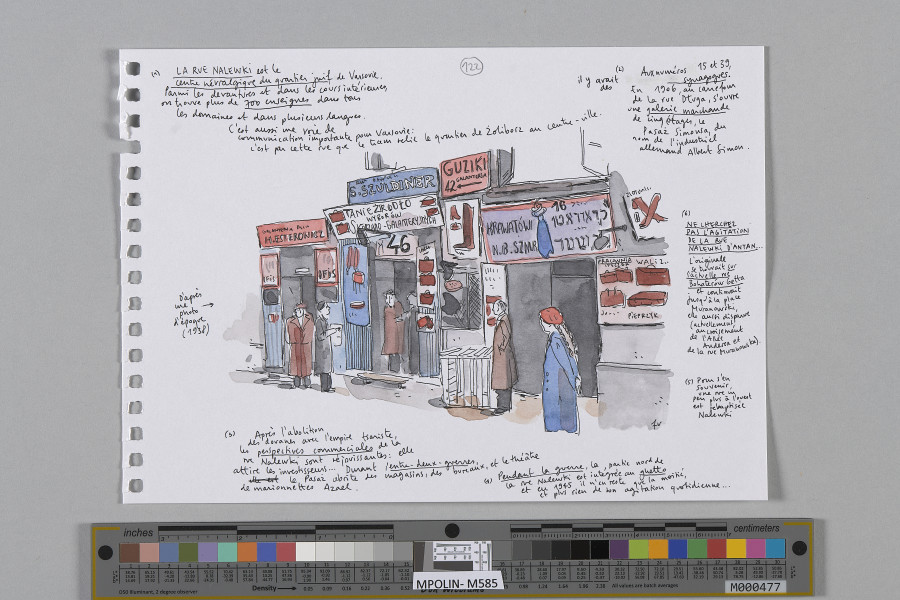 122
(1) LA RUE NALEWKI est le
centre névralgique du quartier juif de Varsovie.
Parmi les devantures et dans les cours intérieures,
on trouve plus de 700 enseignes dans tous
les domaines et dans plusieurs langues.
C'est aussi une voie de
communication importante pour Varsovie:
c'est par cette rue que le tram relie le quartier de Żolibosz au centre-ville.
(2) Aux numéros 15 et 39,
il y avait des synagogues.
En 1906, au carrefour
de la rue Długa, s'ouvre
une galerie marchande
de cinq étages, le
Pasaż Simonsa, du
nom de l'industriel
allemand Albert Simon.
GUZIKI
42 GALANTERIA
S. SZULDINER
TANIE ŹRÓDŁO
WYBORÓW
GALANTERYJNYCH
46
KRAWATÓW
16
N.B. SZMR
WALIZ..
PIEPRZYK
D'après
une
photo
d'époque
(1938)
(6)
NE CHERCHEZ
PAS L'AGITATION
DE LA RUE
NALEWKI D'ANTAN...
L'originale
se trouvait sur
l'actuelle rue
Bohaterów Getta
et continuait
jusqu'à la place
Muranowski,
elle aussi disparue
(actuellement,
au croisement
de l'Allée
Andersa et
de la rue Muranowska).
(5) Pour s'en
souvenir,
une rue un
peu plus à l'ouest
est rebaptisée
Nalewki
(3) Après l'abolition
des douanes avec l'empire tsariste,
les perspectives commerciales de la
rue Nalewki sont réjouissantes: elle
attire les investisseurs... Durant l'entre-deux-guerres,
le Pasaż abrite des magasins, des bureaux, et le théâtre
de marionnettes Azazel.
(4) Pendant la guerre, la partie nord de
la rue Nalewki est intégrée au ghetto
et en 1945 il n'en reste que la moitié,
et plus rien de son agitation quotidienne...
inches
centimeters
D50 Illuminant, 2 degree observer
Density
All values are batch averages
MPOLIN- M585
M000477